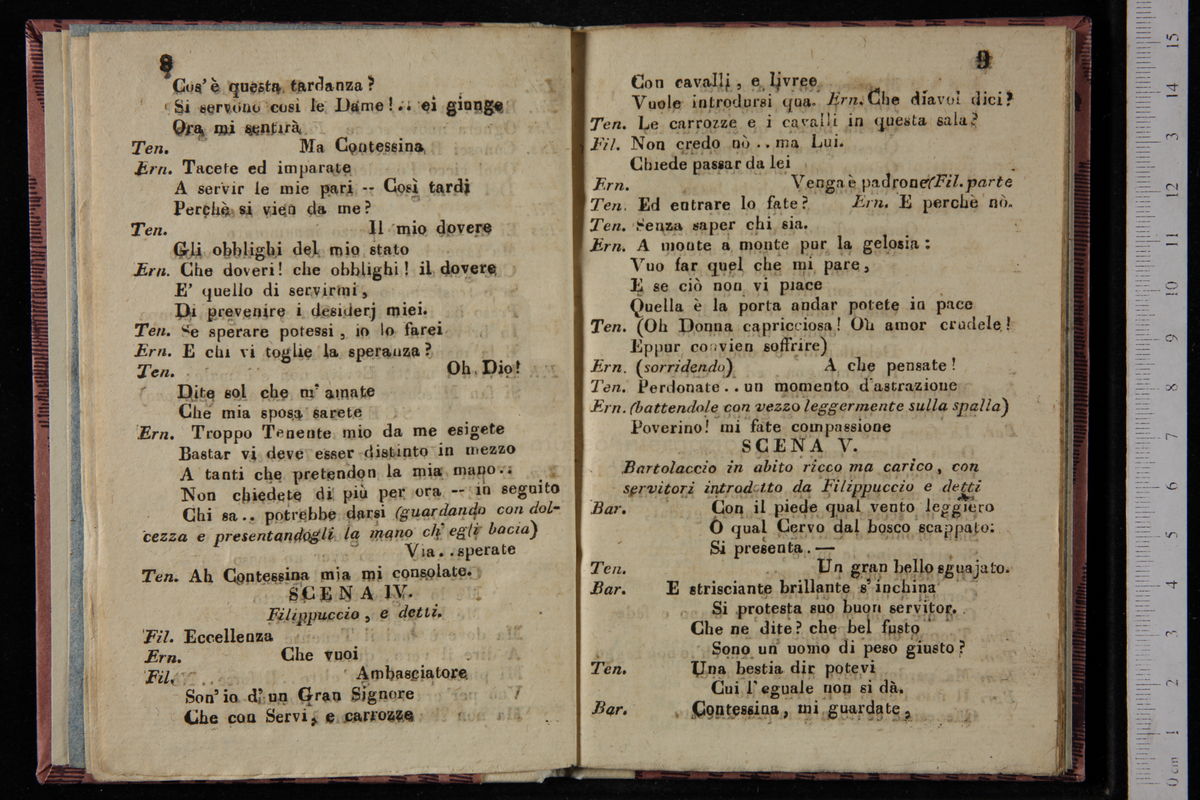 8
Cos' è questa tardanza?
Si servono così le Dame!.. ei giunge
Ora mi sentirà
Ten. Ma Contessina
Ern. Tacete ed imparate
A servir le mie pari -- Così tardi
Perchè si vien da me?
Ten. Il mio dovere
Gli obblighi del mio stato
Ern. Che doveri! che obblighi! il dovere
E' quello di servirmi,
Di prevenire i desiderj miei.
Ten. Se sperare potessi, io lo farei
Ern. E chi vi toglie la speranza?
Ten. Oh Dio!
Dite sol che m' amate
Che mia sposa sarete
Ern. Troppo Tenente mio da me esigete
Bastar vi deve esser distinto in mezzo
A tanti che pretendon la mia mano..
Non chiedete di più per ora -- in seguito
Chi sa.. potrebbe darsi (guardando con dol-
cezza e presentandogli la mano ch' egli bacia)
Via..sperate
Ten. Ah Contessina mia mi consolate.
SCENA IV.
Filippuccio, e detti.
Fil. Eccellenza
Ern. Che vuoi
Fil. Ambasciatore
Son' io d' un Gran Signore
Che con Servi, e carrozze
9
Con cavalli, e livree
Vuole introdursi qua. Ern. Che diavol dici?
Ten. Le carrozze e i cavalli in questa sala?
Fil. Non credo nò .. ma Lui.
Chiede passar da lei
Ern. Venga è padrone (Fil. parte
Ten. Ed entrare lo fate? Ern. E perchè nò.
Ten. Senza saper chi sia.
Ern. A monte a monte pur la gelosia:
Vuo far quel che mi pare,
E se ciò non vi piace
Quella è la porta andar potete in pace
Ten. (Oh Donna capricciosa! Oh amor crudele!
Eppur convien soffrire)
Ern. (sorridendo) A che pensate!
Ten. Perdonate.. un momento d'astrazione
Ern. (battendole con vezzo leggermente sulla spalla)
Poverino! mi fate compassione
SCENA V.
Bartolaccio in abito ricco ma carico, con
servitori introdotto da Filippuccio e detti
Bar. Con il piede qual vento leggiero
O qual Cervo dal bosco scappato:
Si presenta. —
Ten. Un gran bello sguajato.
Bar. E strisciante brillante s' inchina
Si protesta suo buon servitor.
Che ne dite? che bel fusto
Sono un uomo di peso giusto?
Ten. Una bestia dir potevi
Cui l' eguale non si dà.
Bar. Contessina, mi guardate,
0 cm 1 2 3 4 5 6 7 8 9 10 11 12 13 14 15